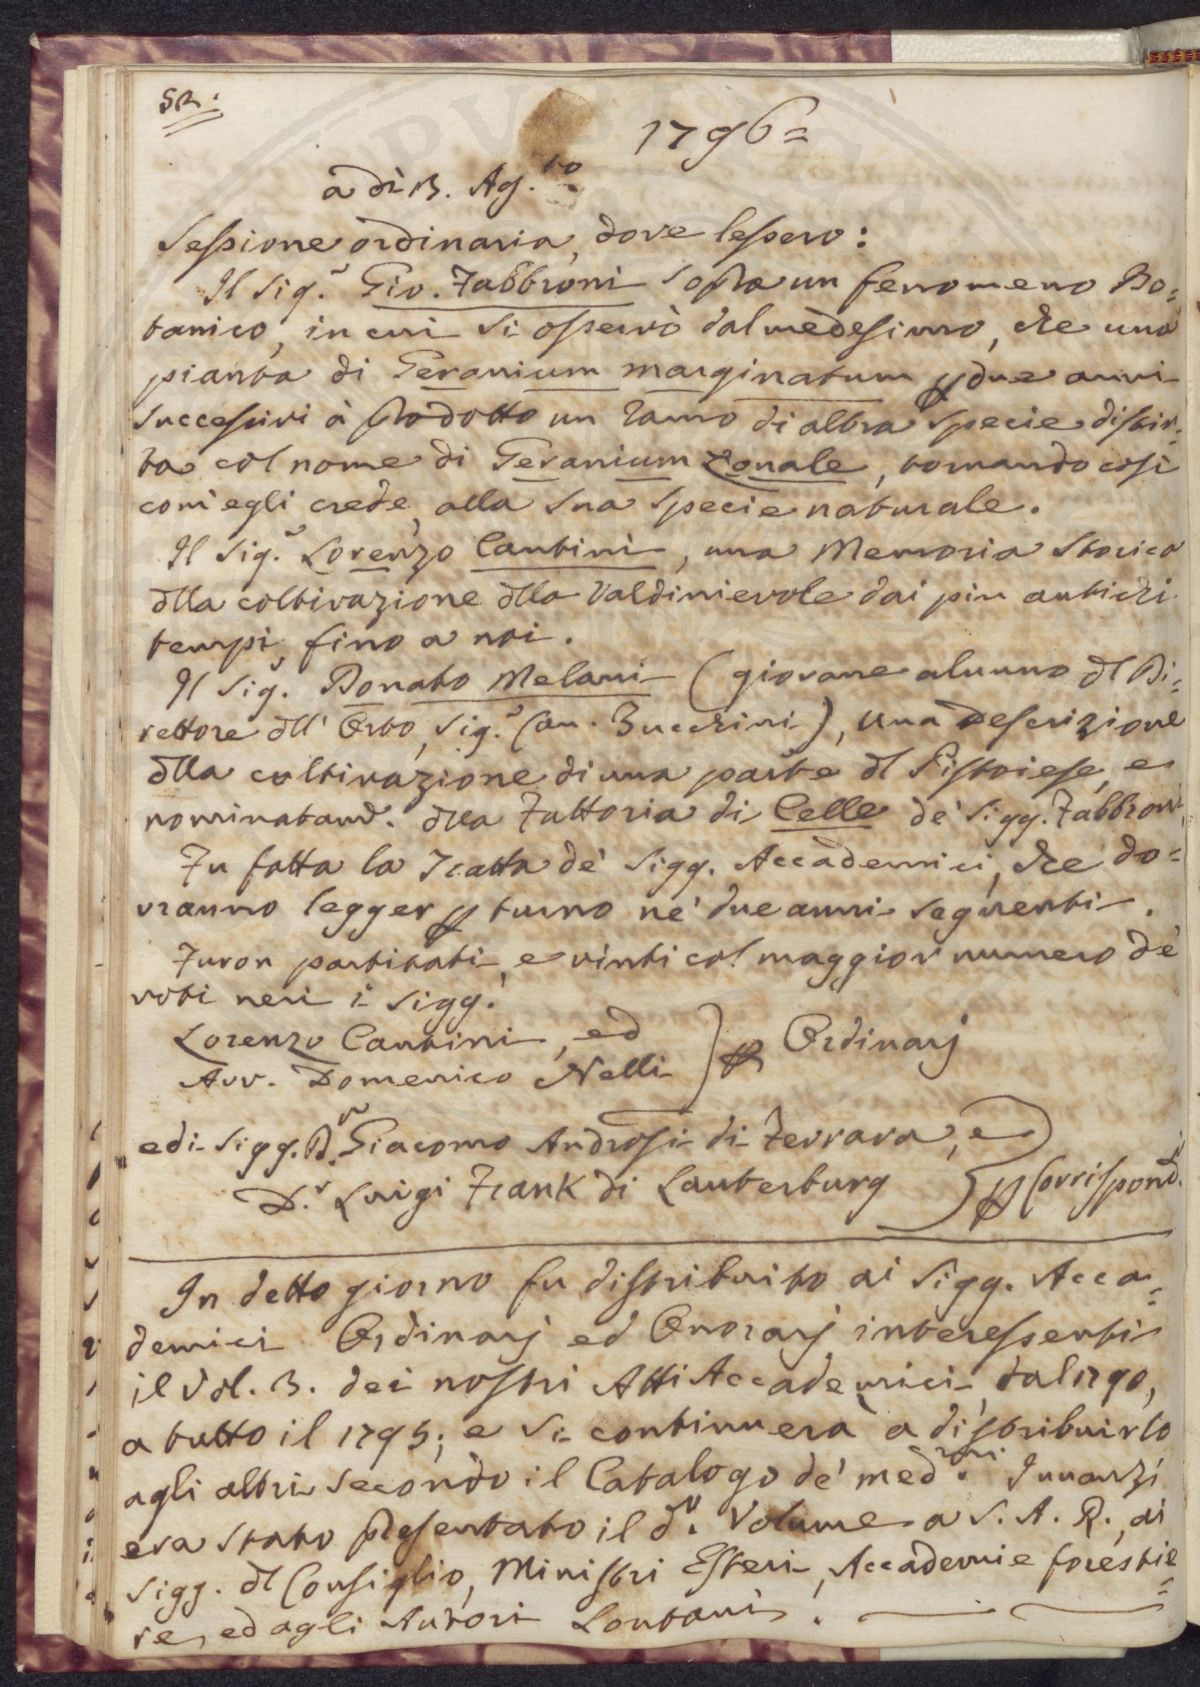 52.
1796=
a dì 3. Ag.to
Sessione ordinaria, dove lessero:
Il Sig.r Gio. Fabbroni sopra un fenomeno Bo=
tanico, in cui si osservò dal medesimo, che una
pianta di Geranium marginatum p due anni
successivi à prodotto un ramo di altra specie distin=
ta col nome di Geranium zonale, tornando così
com'egli crede, alla sua specie naturale.
Il Sig.r Lorenzo Cantini, una Memoria Storica
dlla coltivazione dlla Valdinievole dai piu antichi
tempi fino a noi.
Il Sig.r Donato Melani (giovane alunno dl Di=
rettore dll' Orto, Sig.r Can. Zucchini), una descrizione
dlla coltivazione di una parte dl Pistoiese, e
nominatamd. dlla Fattoria di Celle de' Sigg. Fabbroni.
Fu fatta la Tratta de' Sigg. Accademici, che do=
vranno legger p turno ne' due anni seguenti.
Furon partitati, e vinti col maggior numero de'
voti neri i Sigg.
Lorenzo Cantini, ed
Avv. Domenico Nelli
p Ordinarj
ed i Sigg. D.r Giacomo Androsi di Ferrara, e
D.r Luigi Frank di Lauterburg
p Corrispond.i
In detto giorno fu distribuito ai Sigg. Acca=
demici Ordinarj ed Onorarj interessenti
il Vol. 3. dei nostri Atti Accademici dal 1790,
a tutto il 1795; e si continuerà a distribuirlo
agli altri secondo il Catalogo de' med.mi Innanzi
era stato presentato il d.o Volume a S. A. R., ai
Sigg. dl Consiglio, Ministri Esteri, Accademie forestie=
re, ed agli Autori Lontani.